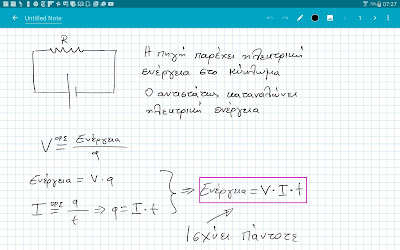 07:27
Untitled Note
1
R
Η πηγή παρέχει ηλεκτρική
ενέργεια στο κύκλωμα
Ο αντιστάτης καταναλώνει
ηλεκτρική ενέργεια
V ορσ = Ενέργεια / q
Ενέργεια = V · q
I ορσ = q / t ⇒ q = I · t
⇒ Ενέργεια = V · I · t
Ισχύει πάντοτε